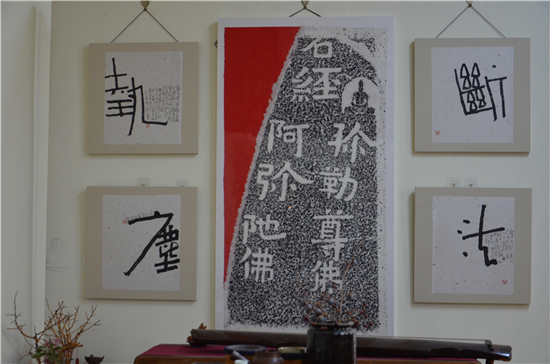 斷
法
弥勒尊佛
石經
阿弥陁佛
執
塵